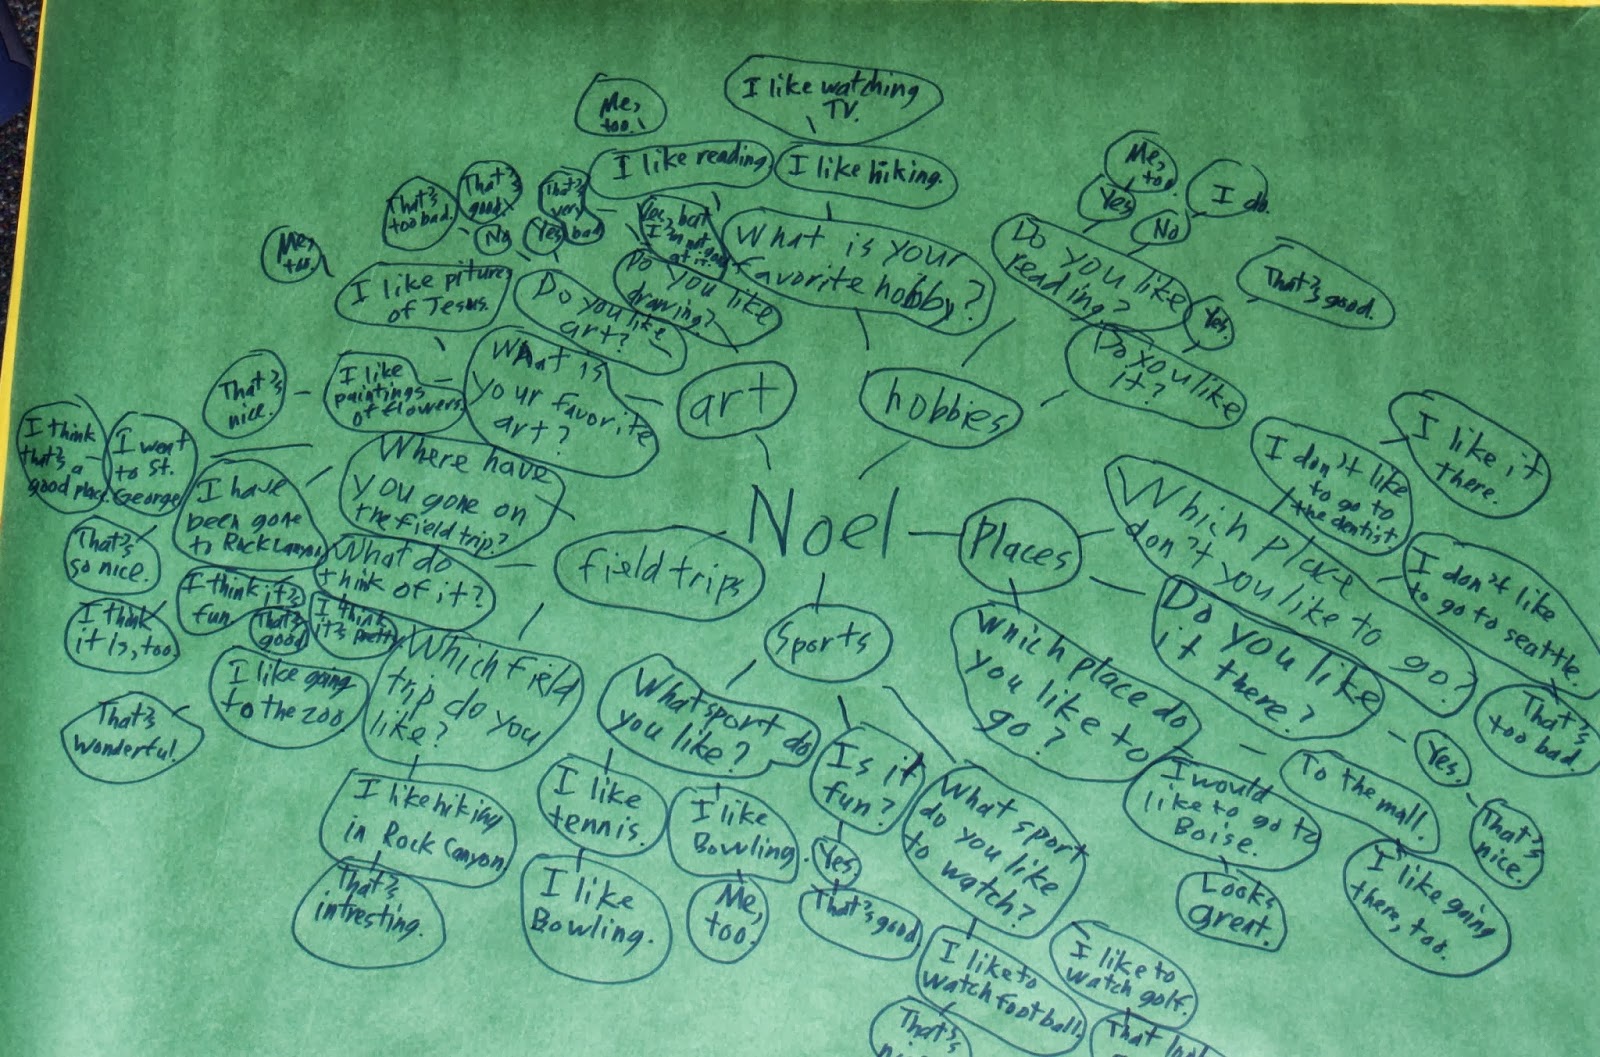 Noel
art
What is
your favorite
art?
I like
paintings
of flowers.
That's
nice.
I like pitures
of Jesus.
Me,
too.
Do you like
art?
No
That's
too bad.
Yes
That's
good.
Do you like
drawing?
Yes, but
I'm not good
at it.
That's
very
bad
hobbies
What is your
favorite hobby?
I like reading.
Me,
too.
I like hiking.
I like watching
TV.
Do you like
reading?
Yes
Me,
too.
No
I do.
Do you like
it?
Yes.
That's good.
Places
Which place
don't you like to
go?
I don't like
to go to
the dentist
I like it
there.
I don't like
to go to seattle.
That's
too bad.
Do you like
it there?
Yes.
That's
nice.
Which place do
you like to
go?
To the mall.
I like going
there, too.
I would
like to go to
Boise.
Looks
great.
Sports
What sport do
you like?
I like
tennis.
I like
Bowling.
I like
Bowling.
Me,
too.
Is it
fun?
Yes
That's good
What sport
do you like
to watch?
I like to
watch football.
That's
I like to
watch golf.
That
field trips
Where have
you gone on
the field trip?
I went
to St.
George
I think
that's a
good place.
I have
been gone
to Rock Canyon
That's
so nice.
What do
think of it?
I think it's
fun
I think
it is, too.
I think
it's pretty
That's
good
Which field
trip do you
like?
I like going
to the zoo
That's
wonderful.
I like hiking
in Rock Canyon
That's
intresting.